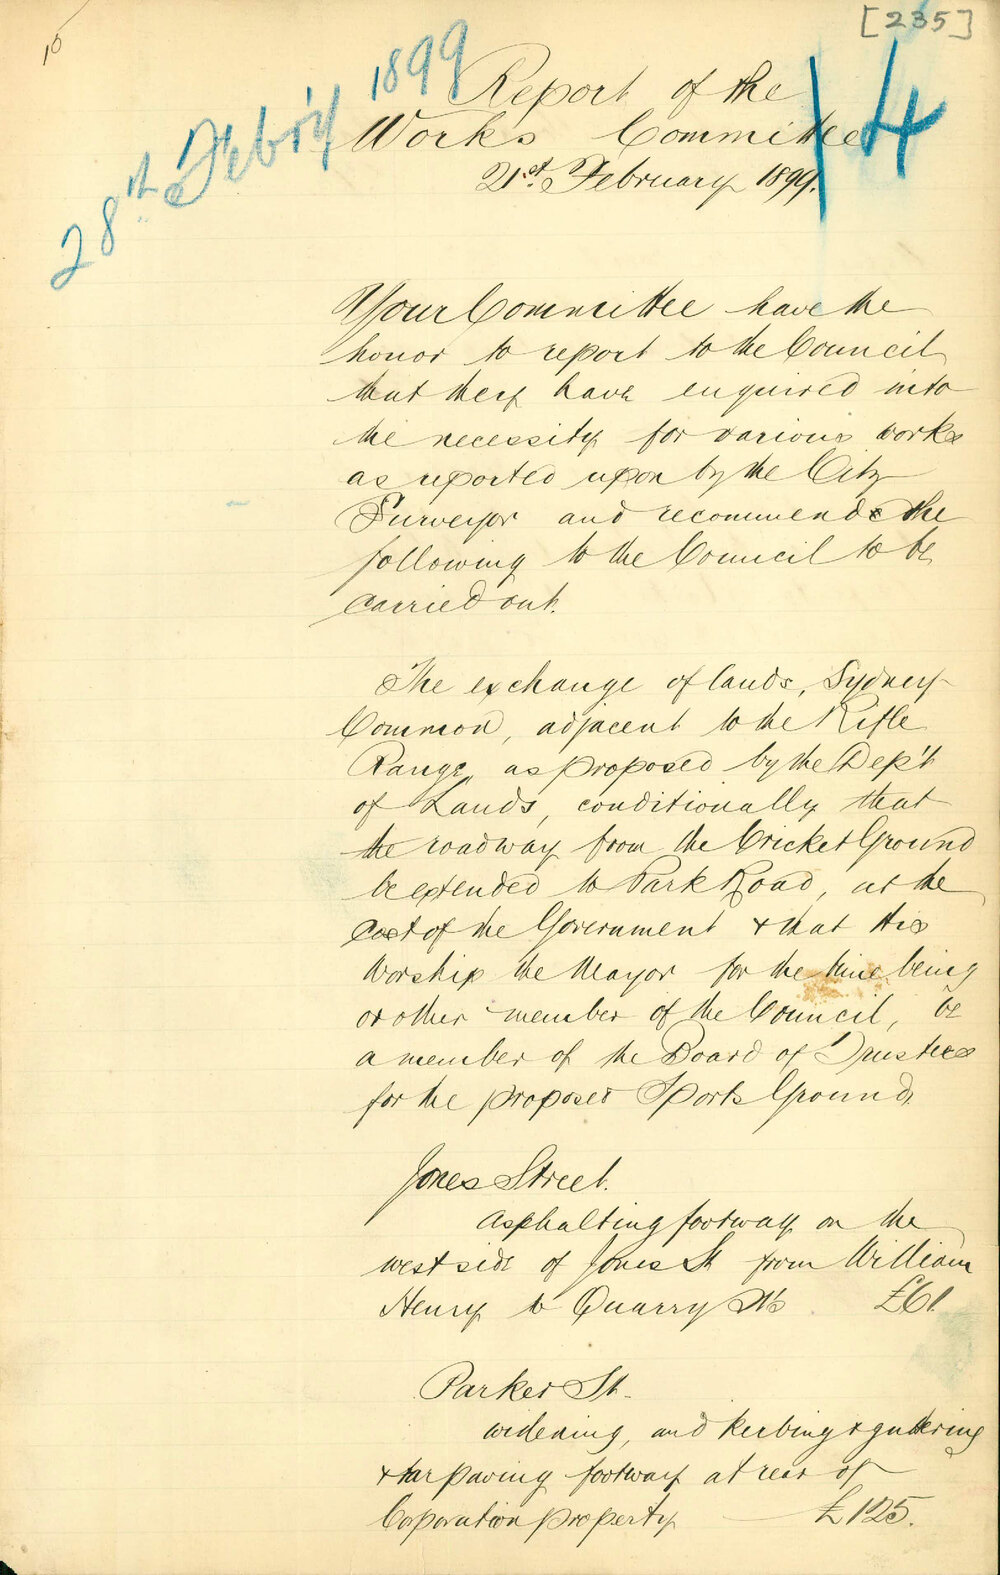 10
[235]
28th Feb'ry 1899
14
Report of the
Works Committee
21st February 1899.
Your Committee have the
honor to report to the Council
that they have enquired into
the necessity for various works
as reported upon by the City
Surveyor and recommend the
following to the Council to be
carried out.
The exchange of lands, Sydney
Common, adjacent to the Rifle
Range, as proposed by the Dep't
of Lands, conditionally that
the roadway from the Cricket Ground
be extended to Park Road, at the
cost of the Government & that His
Worship the Mayor for the time being
or other member of the Council, be
a member of the Board of Trustees
for the proposed Sports Ground.
Jones Street.
Asphalting footway on the
west side of Jones St from William
Henry to Quarry Sts £61.
Parker St.
widening, and kerbing & guttering
& tarpaving footway at rear of
Corporation property £125.